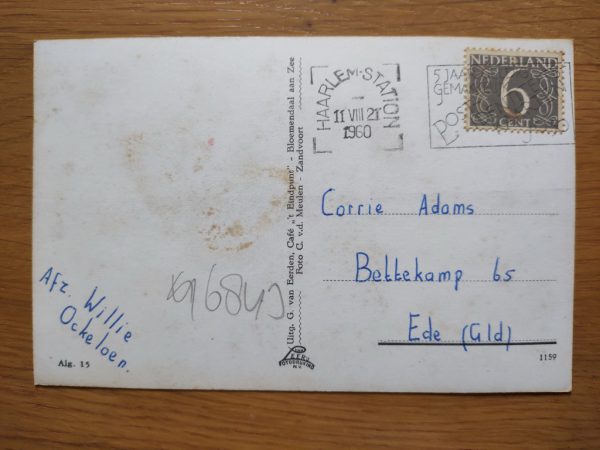 HAARLEM-STATION
11 VIII 21
1960
5 JAA
GEMA
POS
NEDERLAND
6
CENT
Uitg. G. van Eerden, Café „'t Eindpunt" - Bloemendaal aan Zee
Foto C. v.d. Meulen - Zandvoort
Corrie Adams
Bettekamp 65
Ede (Gld)
Afz. Willie
Ockeloen.
Alg. 15
FOTODRUKKERIJ
N.V.
1159